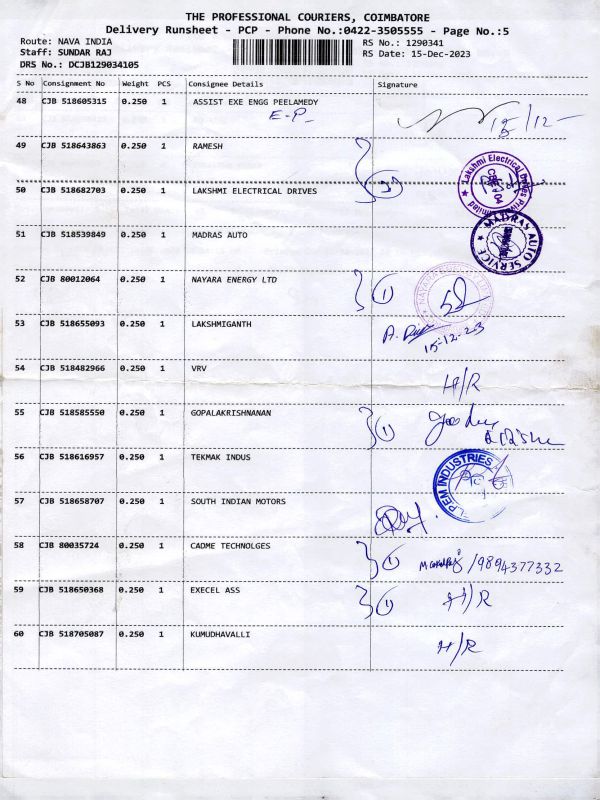 THE PROFESSIONAL COURIERS, COIMBATORE
Delivery Runsheet - PCP - Phone No.:0422-3505555 - Page No.:5
Route: NAVA INDIA RS No.: 1290341
Staff: SUNDAR RAJ RS Date: 15-Dec-2023
DRS No.: DCJB129034105
S No Consignment No Weight PCS Consignee Details Signature
48 CJB 518605315 0.250 1 ASSIST EXE ENGG PEELAMEDY
E-P- 15/12-
49 CJB 518643863 0.250 1 RAMESH
Lakshmi Electrical Drives Private Limited
50 CJB 518682703 0.250 1 LAKSHMI ELECTRICAL DRIVES
51 CJB 518539849 0.250 1 MADRAS AUTO
MADRAS AUTO SERVICE
52 CJB 80012064 0.250 1 NAYARA ENERGY LTD
1 NAYARA
53 CJB 518655093 0.250 1 LAKSHMIGANTH
15-12-23
54 CJB 518482966 0.250 1 VRV
H/R
55 CJB 518585550 0.250 1 GOPALAKRISHNANAN
1
56 CJB 518616957 0.250 1 TEKMAK INDUS
PEM INDUSTRIES
57 CJB 518658707 0.250 1 SOUTH INDIAN MOTORS
58 CJB 80035724 0.250 1 CADME TECHNOLGES
1 /9894377332
59 CJB 518650368 0.250 1 EXECEL ASS
1 H/R
60 CJB 518705087 0.250 1 KUMUDHAVALLI
H/R